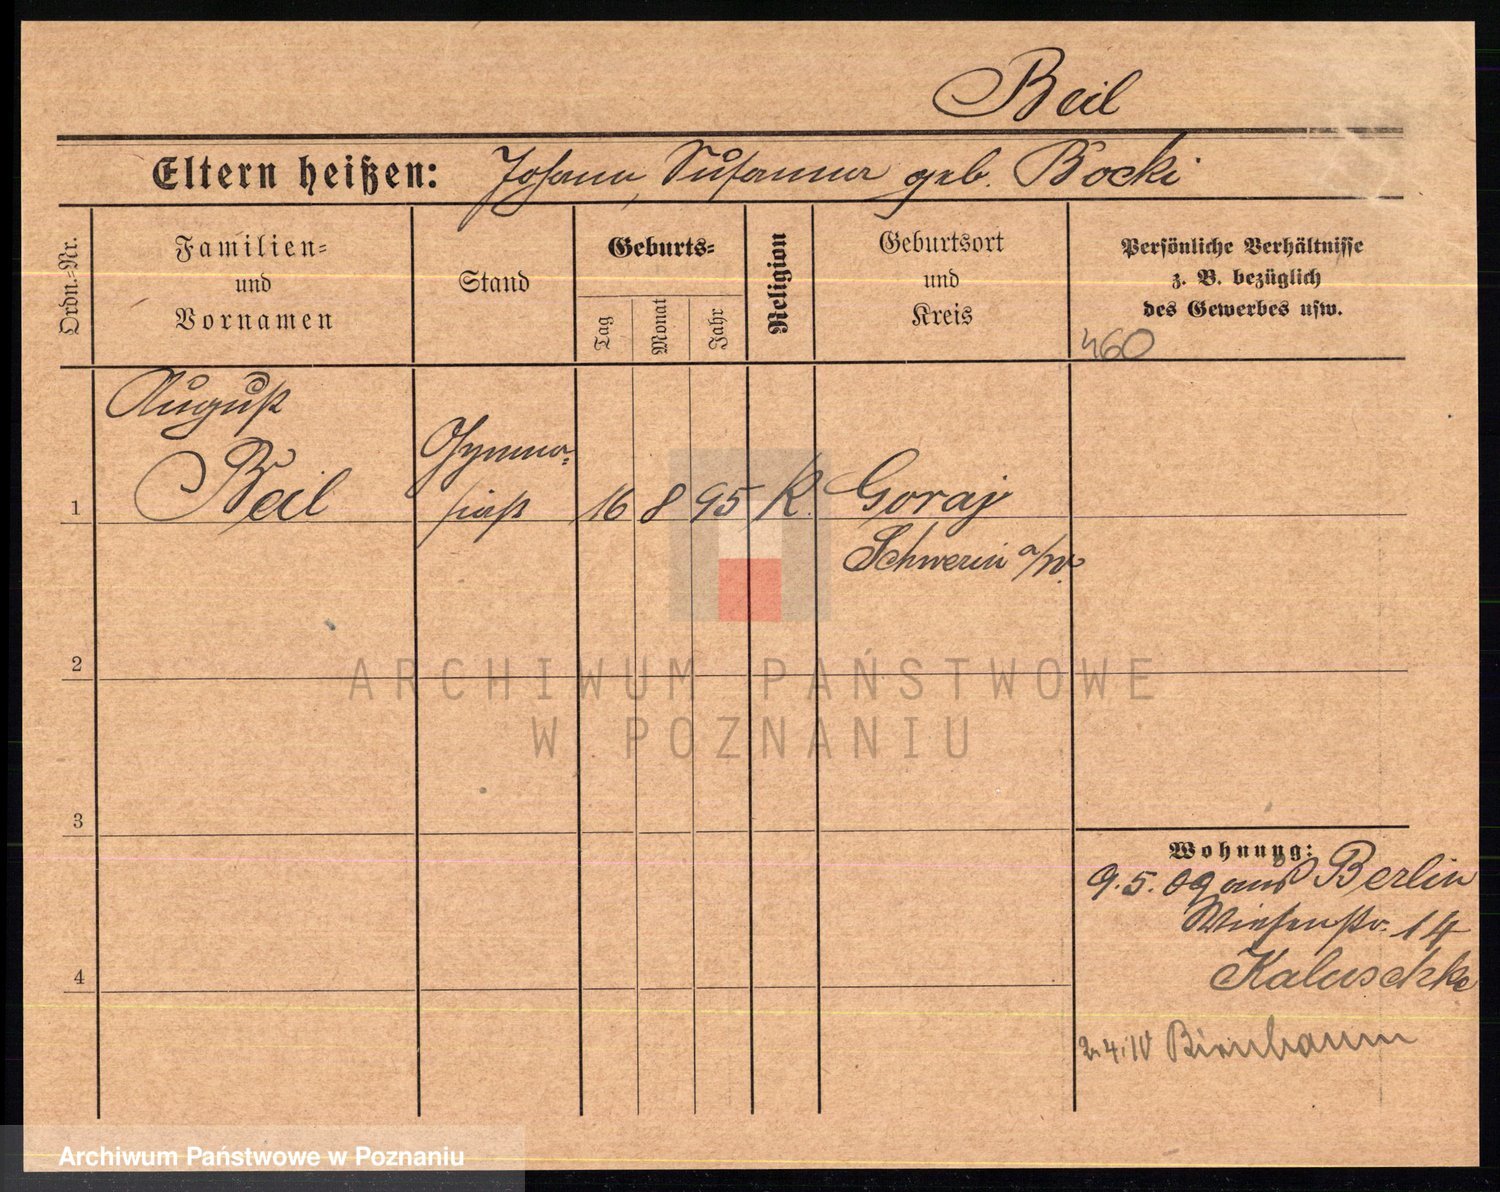 Beil
Eltern heißen: Johann, Susanna geb. Bocki
Ordn.=Nr.
Familien=
und
Vornamen
Stand
Geburts=
Tag
Monat
Jahr
Religion
Geburtsort
und
Kreis
Persönliche Verhältnisse
z. B. bezüglich
des Gewerbes usw.
460
1
August
Beil
Gymna=
siast
16 8 95 K.
Goraj
Schwerin a/W.
2
3
4
Wohnung:
9.5.09 aus Berlin
Wiesenstr. 14
Kaluschke
Birnbaum
ARCHIWUM PAŃSTWOWE
W POZNANIU
Archiwum Państwowe w Poznaniu